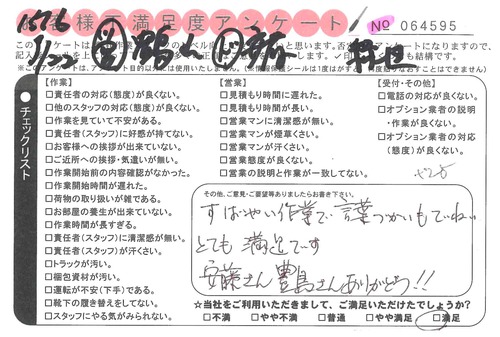 お客様ご満足度アンケート
No 064595
1576
1/22
【作業】
□責任者の対応(態度)が良くない。
□他のスタッフの対応(態度)が良くない。
□作業を見ていて不安がある。
□責任者(スタッフ)に好感が持てない。
□お客様への挨拶が出来ていない。
□ご近所への挨拶・気遣いが無い。
□作業開始前の内容確認がなかった。
□作業開始時間が遅れた。
□荷物の取り扱いが雑である。
□お部屋の養生が出来ていない。
□作業時間が長すぎる。
□責任者(スタッフ)に清潔感が無い。
□責任者(スタッフ)が汗くさい。
□トラックが汚い。
□梱包資材が汚い。
□運転が不安(下手)である。
□靴下の履き替えをしてない。
□スタッフにやる気がみられない。
●チェックリスト
【営業】
□見積もり時間に遅れた。
□見積もり時間が長い。
□営業マンに清潔感が無い。
□営業マンが煙草くさい。
□営業マンが汗くさい。
□営業態度が良くない。
□営業の説明と作業が一致してない。
【受付・その他】
□電話の対応が良くない。
□オプション業者の説明
・作業が良くない。
□オプション業者の対応
(態度)が良くない。
その他、ご意見・ご要望等ありましたらお書き下さい。
すばやい作業で、言葉づかいもていねい
とても満足です
安藤さん豊島さんありがとう!!
☆当社をご利用いただきまして、ご満足いただけたでしょうか?
□不満 □やや不満 □普通 □やや満足 □満足